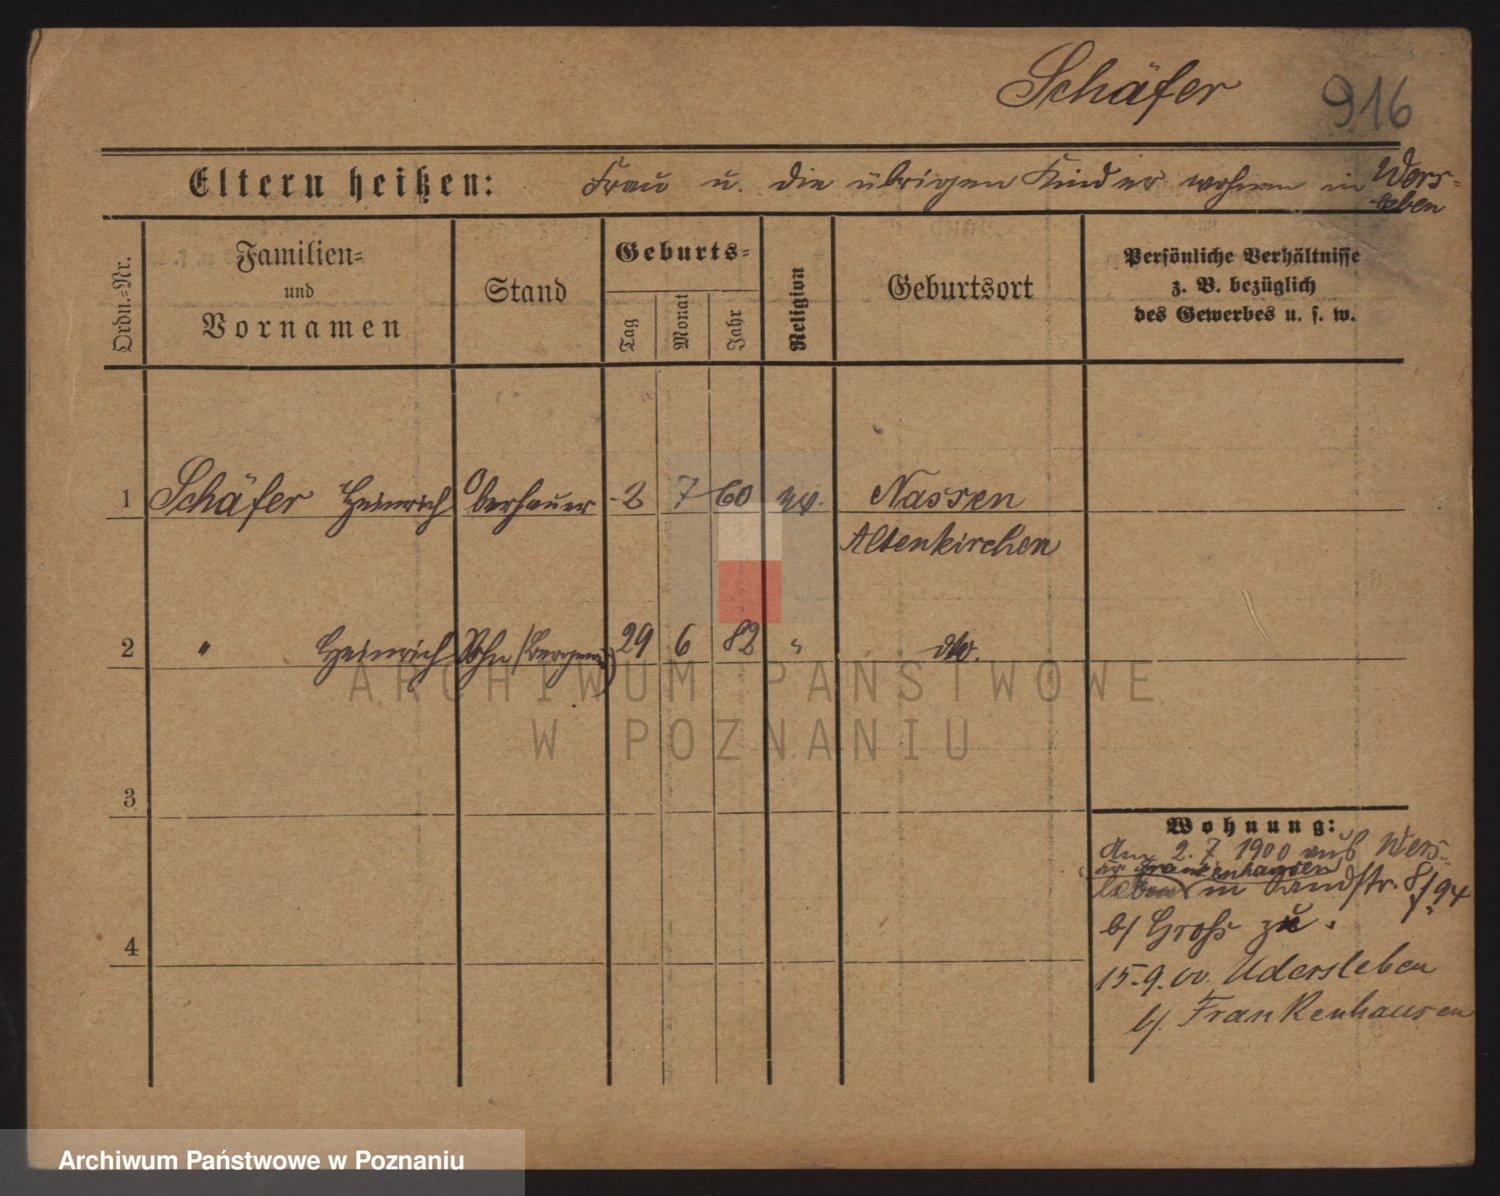 Schäfer
916
Eltern heißen: Frau u. die übrigen Kinder wohnen in Wers-
leben
Ordn.=Nr.
Familien=
und
Vornamen
Stand
Geburts=
Tag
Monat
Jahr
Religion
Geburtsort
Persönliche Verhältnisse
z. B. bezüglich
des Gewerbes u. s. w.
1 Schäfer Heinrich Oberhauer 2 7 60 ev. Nassen
Altenkirchen
2 " Heinrich Sohn 29 6 82 " dto.
3
4
Wohnung:
Am 2. 7 1900 aus Wers-
Frankenhausen
leben in Sandstr. 8/94
b/ Groß zu.
15.9.00. Udersleben
b/. Frankenhausen
ARCHIWUM PAŃSTWOWE
W POZNANIU
Archiwum Państwowe w Poznaniu